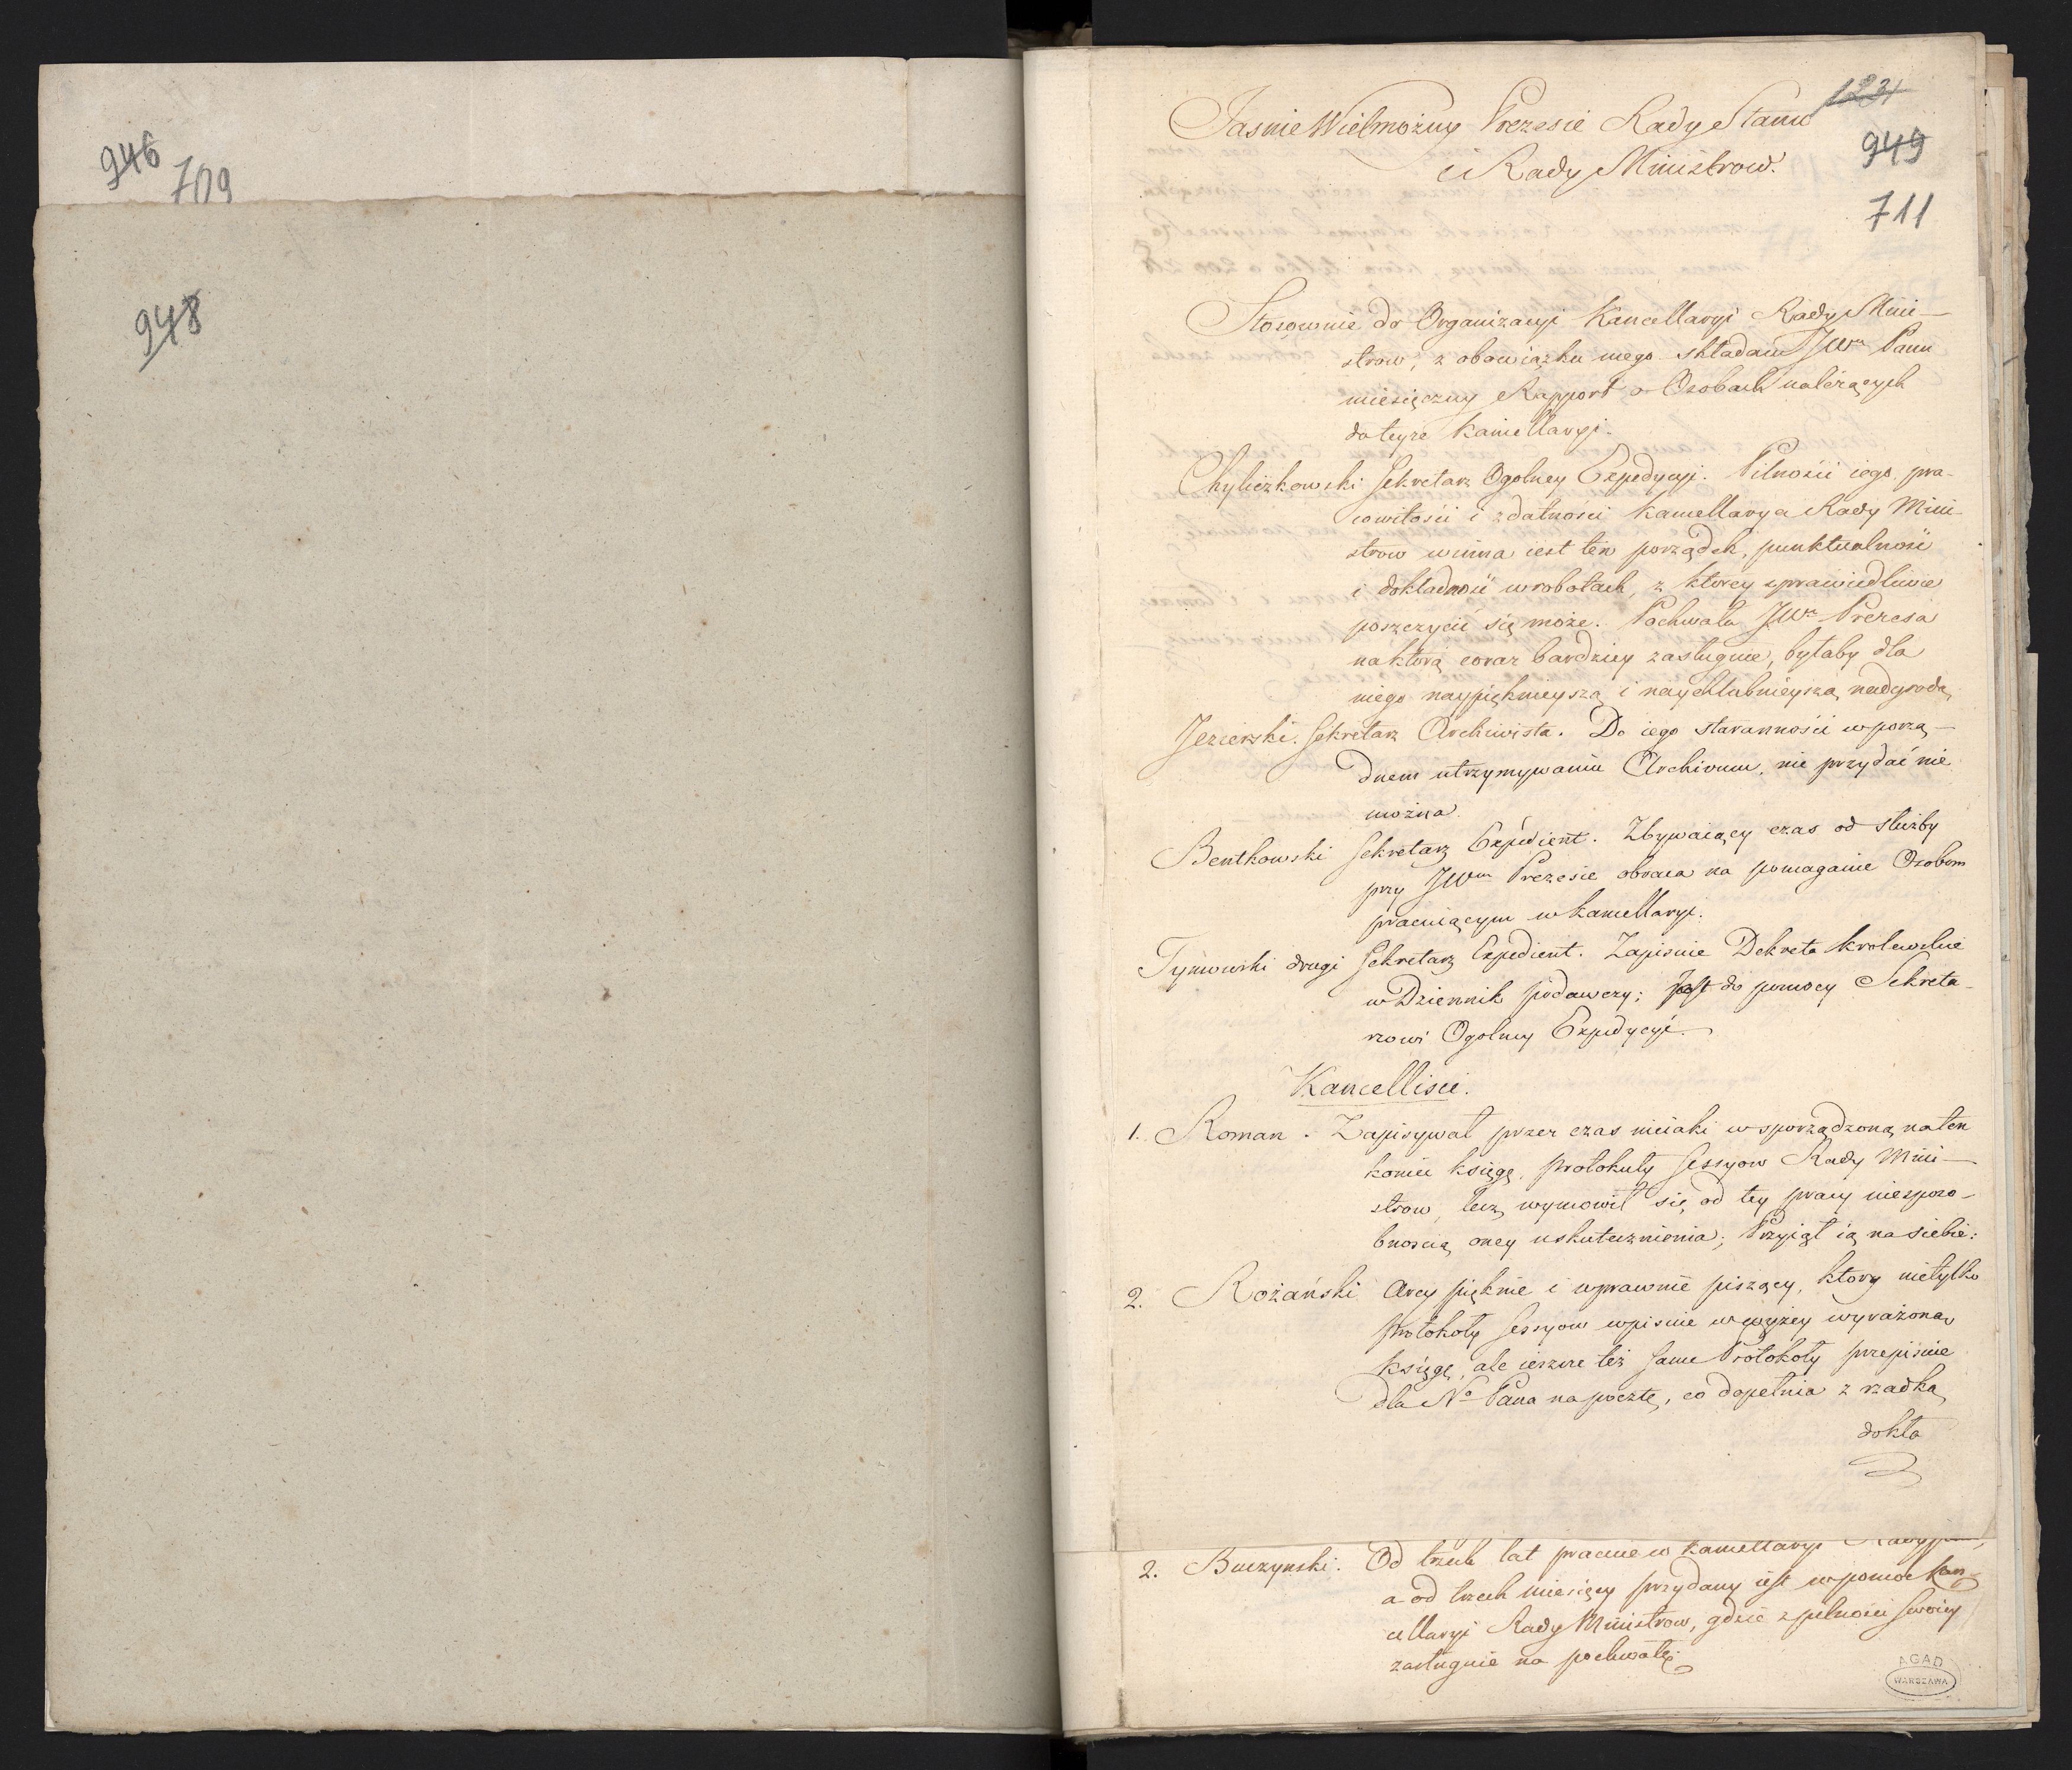 946
709
948
1231
949
711
Jasnie Wielmożny Prezesie Rady Stanu
i Rady Ministrow.
Stosownie do Organizacyi Kancellaryi Rady Mini-
strow, z obowiązku mego składam JWu Panu
miesięczny Rapport o Osobach należących
do teyże Kancellaryi.
Chyliczkowski Sekretarz Ogolney Expedycyi. Pilności iego, pra-
cowitości i zdatności Kancellarya Rady Mini-
strow winna iest ten porządek, punktualność
i dokładność w robotach, z ktorey sprawiedliwie
poszczycić się może. Pochwała JWo Prezesa
na ktorą coraz bardziey zasługuie, byłaby dla
niego naypięknieyszą i naychlubnieyszą nadgrodą,
Jezierski. Sekretarz Archiwista. Do iego staranności w porzą-
dnem utrzymywaniu Archivum, nic przydać nie
można.
Bentkowski Sekretarz Expedient. Zbywaiący czas od służby
przy JWm Prezesie obraca na pomaganie Osobom
pracuiącym w Kancellaryi.
Tymowski drugi Sekretarz Expedient. Zapisuie Dekreta Krolewskie
w Dziennik podawczy; Jest do pomocy Sekreta-
rzowi Ogolney Expedycyi.
Kancellisci.
1. Roman. Zapisywał przez czas nieiaki w sporządzoną na ten
koniec księgę, protokuły Sessyow Rady Mini-
strow, lecz wymowił się od tey pracy niesposo-
bnością oney uskutecznienia; Przyiął ią na siebie:
2. Rożański Arcy pięknie i wprawnie piszący, ktory nietylko
protokoły Sessyow wpisuie w wyżey wyrażoną
księgę, ale ieszcze też same Protokoły przepisuie
dla No Pana na pocztę, co dopełnia z rzadką
dokła
2. Buczynski. Od trzech lat pracuie w Kancellaryi Rady
a od trzech miesięcy przydany iest w pomoc Kan-
cellaryi Rady Ministrow, gdzie z pilności swoiey
zasługuie na pochwałę.
AGAD
WARSZAWA